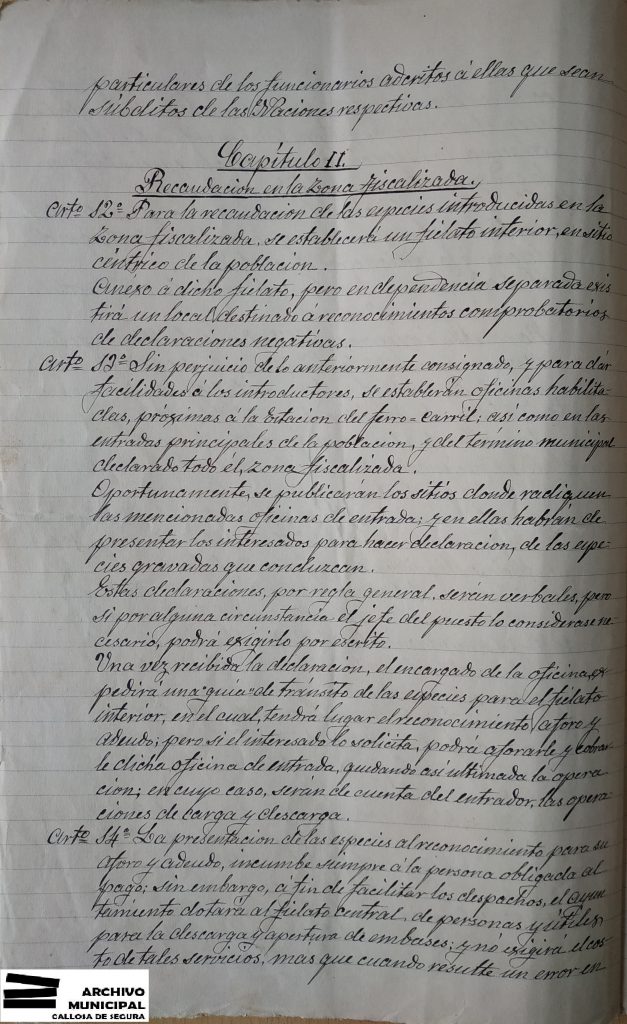 particulares de los funcionarios adcritos á ellas que sean
súbditos de las Naciones respectivas.
Capítulo II.
Recaudacion en la Zona fiscalizada.
Arto 12º Para la recaudacion de las especies introducidas en la
Zona fiscalizada, se establecerá un fielato interior, en sitio
céntrico de la poblacion.
Anexo á dicho fielato, pero en dependencia separada exis
tirá un local destinado á reconocimientos comprobatorios
de declaraciones negativas.
Arto 13º Sin perjuicio de lo anteriormente consignado, y para dar
facilidades á los introductores, se establerán oficinas habilita-
das, próximas á la Estacion del ferro=carril; asi como en las
entradas principales de la poblacion, y del termino municipal
declarado todo él, zona fiscalizada.
Oportunamente, se publicarán los sitios donde radiquen
las mencionadas oficinas de entrada; y en ellas habrán de
presentar los interesados para hacer declaracion, de las espe-
cies gravadas que conduzcan.
Estas declaraciones, por regla general, serán verbales, pero
si por alguna circunstancia el jefe del puesto lo considerase ne
cesario, podrá exigirlo por escrito.
Una vez recibida la declaracion, el encargado de la oficina, ex
pedirá una "guia" de tránsito de las especies para el fielato
interior, en el cual, tendrá lugar el reconocimiento, aforo y
adeudo; pero si el interesado lo solicita, podrá aforarle y cobrar
le dicha oficina de entrada, quedando asi ultimada la opera
cion; en cuyo caso, serán de cuenta del entrador, las opera
ciones de carga y descarga.
Arto 14º La presentacion de las especies al reconocimiento para su
aforo y adeudo, incumbe siempre á la persona obligada al
pago; sin embargo, á fin de facilitar los despachos, el Ayun
tamiento dotará al fielato central, de personas y útiles,
para la descarga y apertura de embases; y nó exigirá el cos
to de tales servicios, mas que cuando resulte un error en
ARCHIVO
MUNICIPAL
CALLOSA DE SEGURA